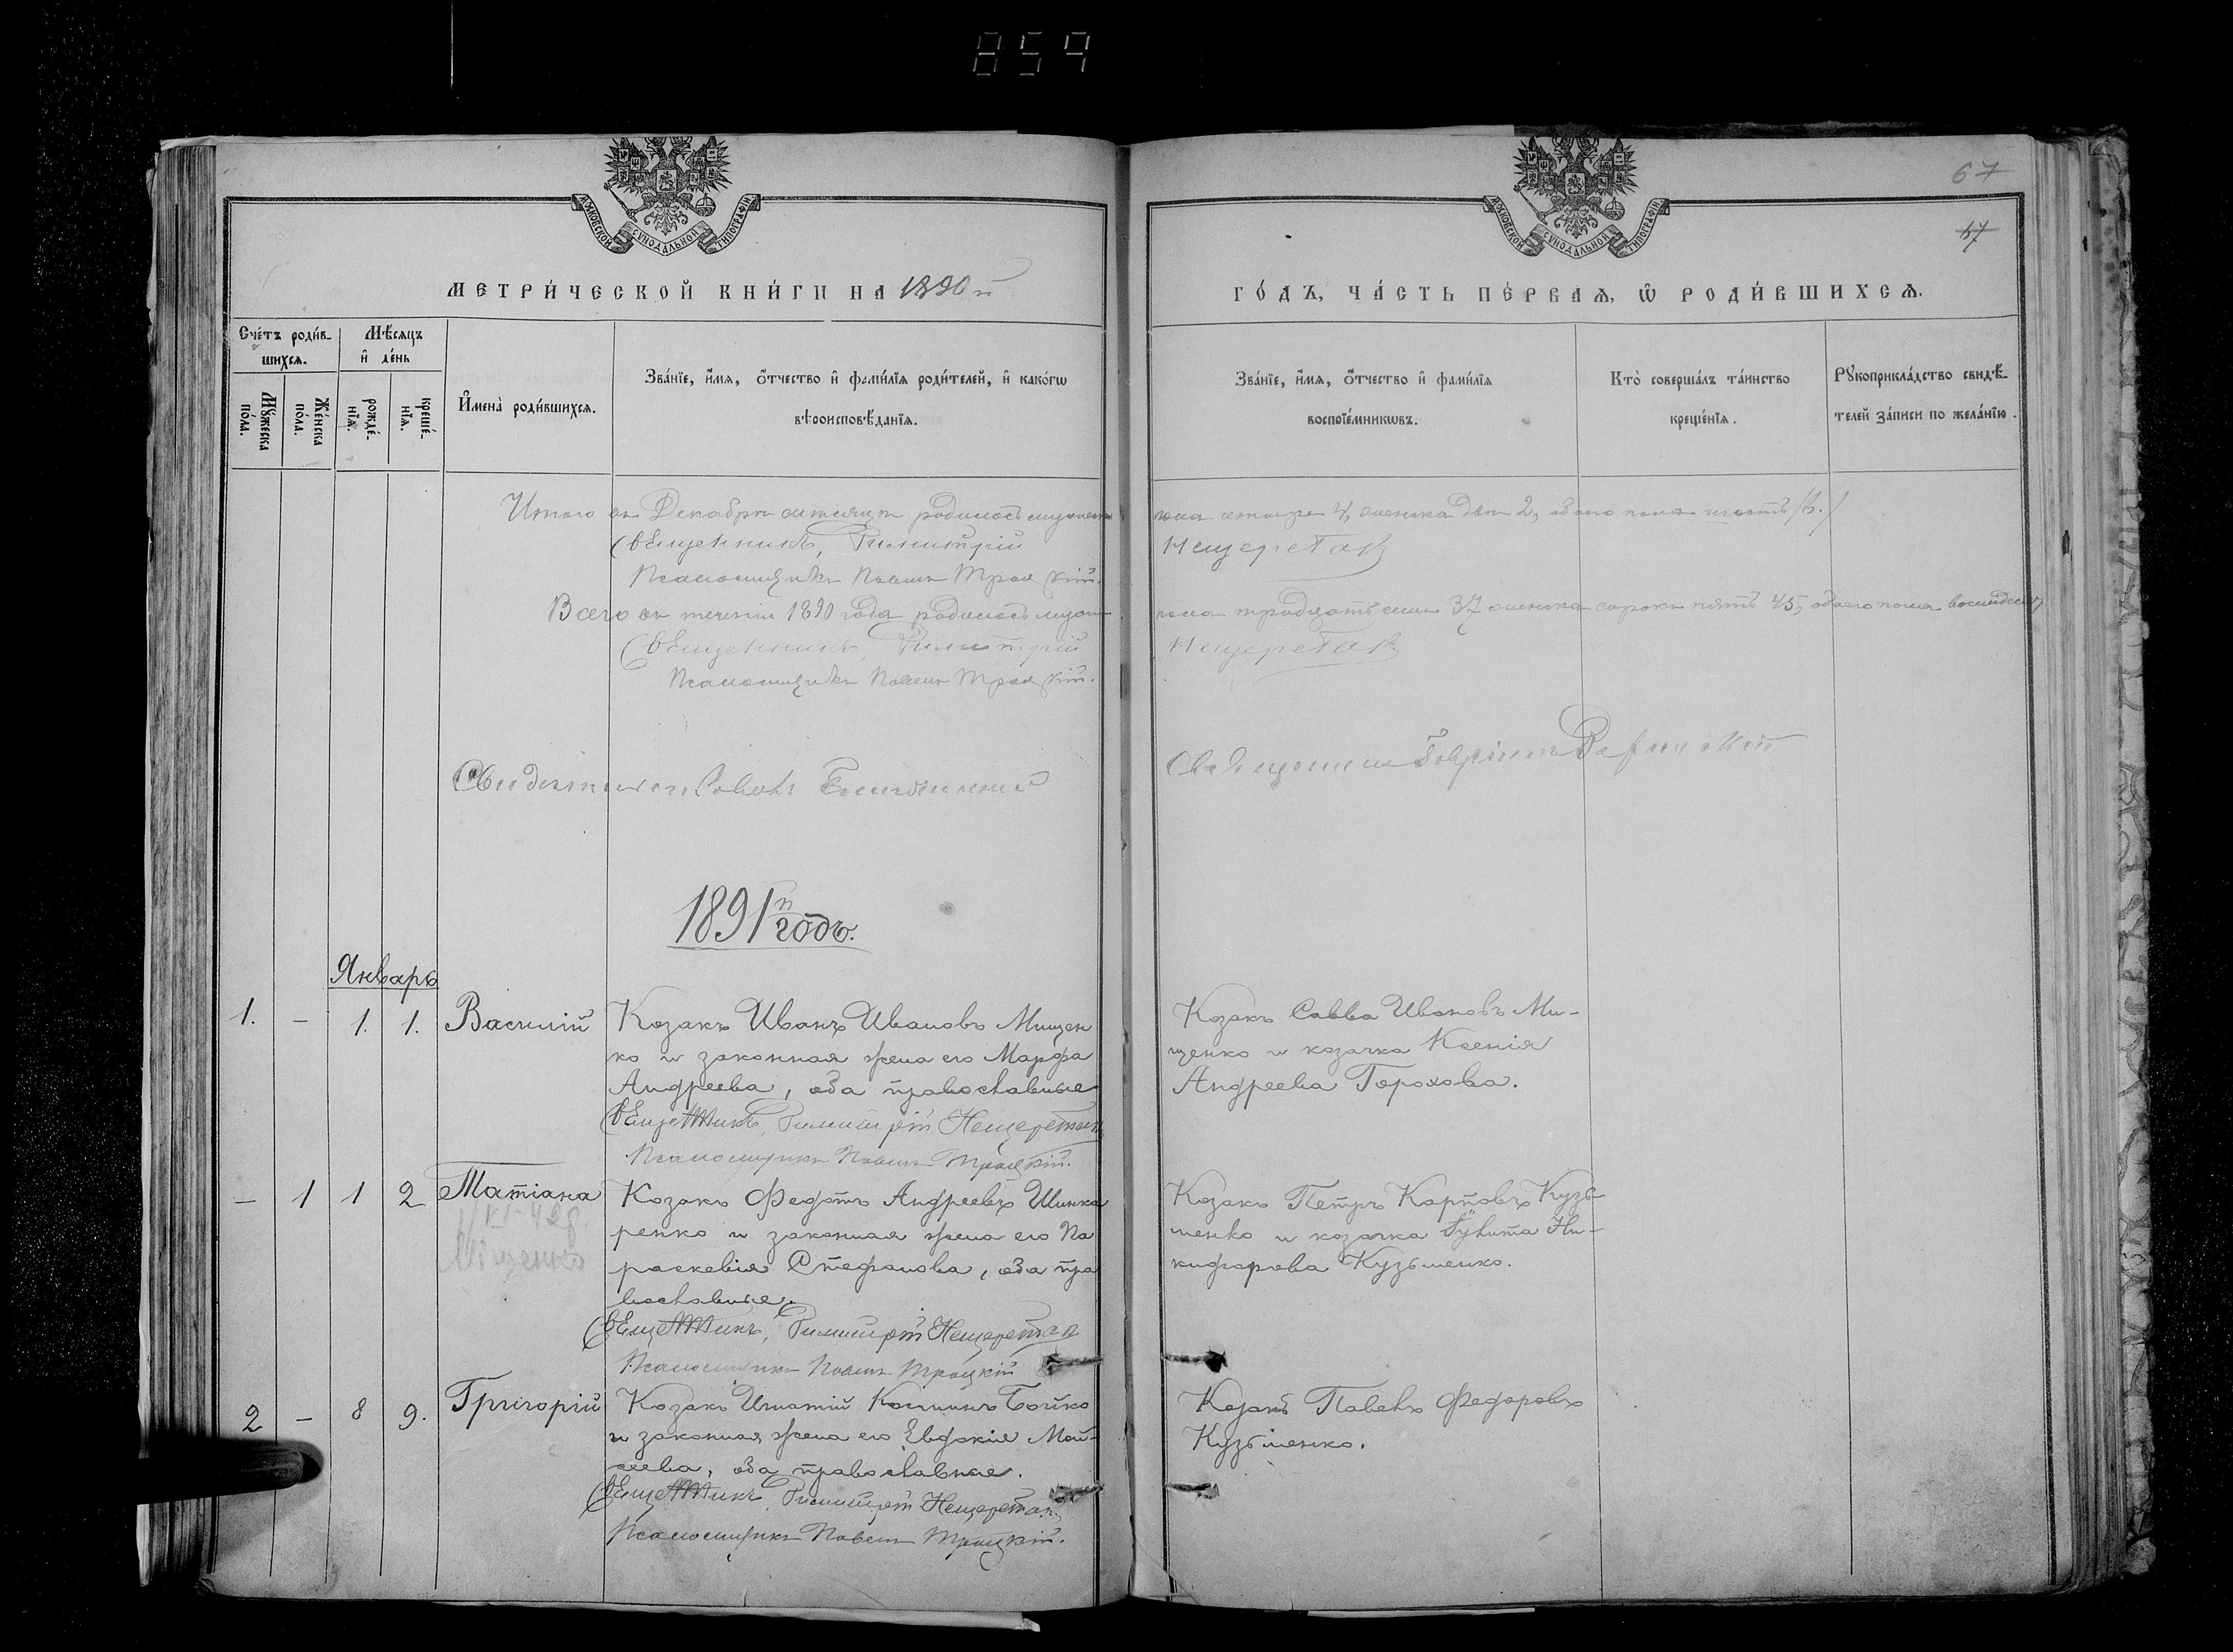 859
МОСКОВСКОЙ СѴНОДАЛЬНОЙ ТИПОГРАФІИ
МОСКОВСКОЙ СѴНОДАЛЬНОЙ ТИПОГРАФІИ
67
67
МЕТРИ́ЧЕСКОЙ КНИ́ГИ НА 1890 й
ГО́ДЪ, ЧА́СТЬ ПЕ́РВАѦ, Ѡ҆ РОДИ́ВШИХСѦ.
Сче́тъ роди́в-
шихсѧ.
Мѣ́сѧцъ
и҆ де́нь
Мꙋ́жеска по́ла.
Же́нска по́ла.
рожде́-
нїѧ.
креще́-
нїѧ.
И҆мена̀ роди́вшихсѧ.
Зва́нїе, и҆́мѧ, ѻ҆́тчество и҆ фами́лїѧ роди́телей, и҆ како́гѡ
вѣроисповѣ́данїѧ.
Зва́нїе, и҆́мѧ, ѻ҆́тчество и҆ фами́лїѧ
воспрїе́мникѡвъ.
Кто̀ соверша́лъ та́инство
креще́нїѧ.
Рꙋкоприкла́дство свидѣ́-
телей за́писи по жела́нїю.
Итого въ Декабрѣ мѣсяцѣ родилось мужеска
пола четыре 4, женска двѣ 2, обоего пола шесть /6./
Священникъ, Димитрій
Нещеретовъ
Псаломщикъ Павелъ Троцкій.
Всего въ теченіи 1890 года родилось муж
пола тридцать семь 37 женска сорокъ пять 45, обоего пола восемдесят
Священникъ, Димитрій
Нещеретов
Псаломщикъ Павелъ Троцкій.
1891 й годъ.
Январь
1. – 1. 1. Василій
Козакъ Иванъ Ивановъ Мищен
ко и законная жена его Марфа
Андреева, оба православные
Священникъ, Димитрій Нещеретовъ
Псаломщикъ Павелъ Троцкій.
Козакъ Савва Ивановъ Ми-
щенко и козачка Ксенія
Андреева Горохова.
– 1 1 2 Татіана
Козакъ Федотъ Андреевъ Шинка
ренко и законная жена его Па
раскевія Стефанова, оба пра
вославные.
Священникъ, Димитрій Нещеретовъ
Псаломщикъ Павелъ Троцкій
Козакъ Петръ Карповъ Кузь-
менко и козачка Ни-
кифорова Кузьменко.
2 – 8 9. Григорій
Козакъ Игнатій Косминъ Бойко
и законная жена его Евдокія Мои-
сеева, оба православные.
Священникъ, Димитрій Нещеретовъ
Псаломщикъ Павелъ Троцкій.
Козакъ Павелъ Федоровъ
Кузьменко.